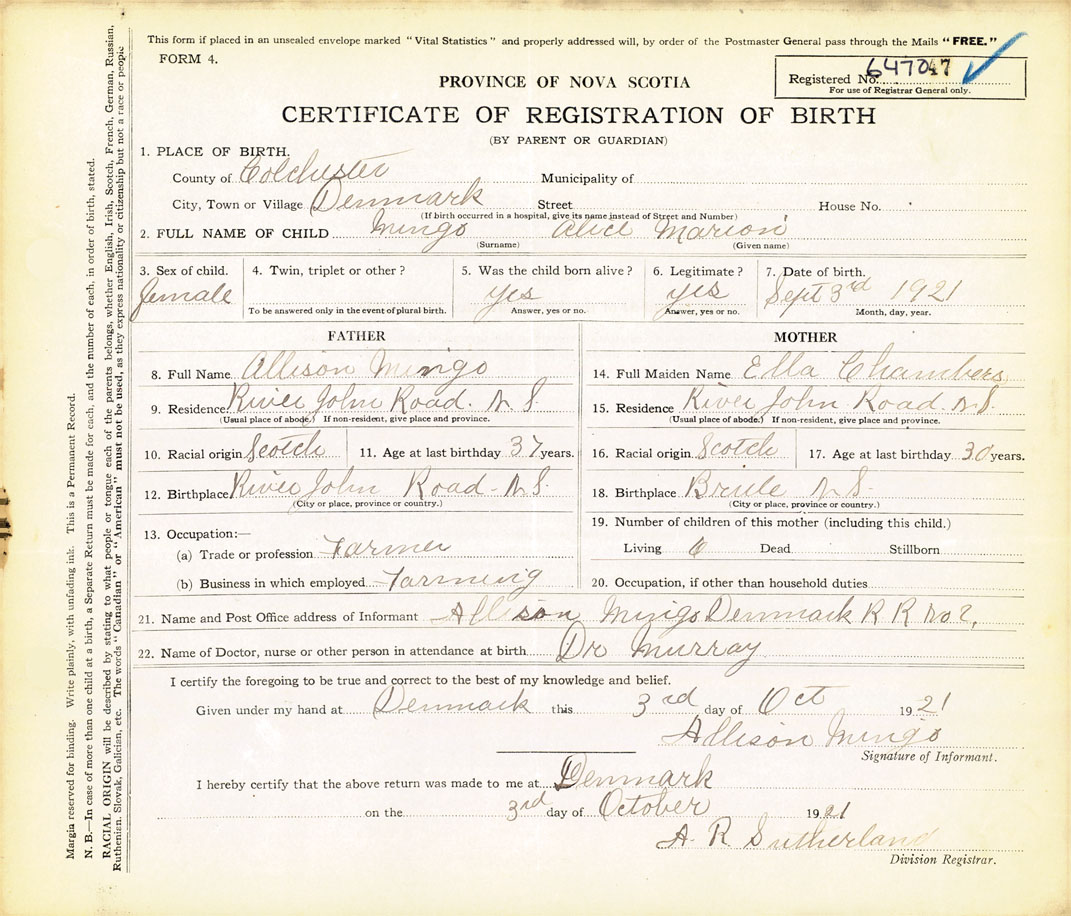 This form if placed in an unsealed envelope marked "Vital Statistics" and properly addressed will, by order of the Postmaster General pass through the Mails "FREE."
FORM 4.
Registered No. 647047
For use of Registrar General only.
PROVINCE OF NOVA SCOTIA
CERTIFICATE OF REGISTRATION OF BIRTH
(BY PARENT OR GUARDIAN)
1. PLACE OF BIRTH.
County of Colchester Municipality of
City, Town or Village Denmark Street House No.
(If birth occurred in a hospital, give its name instead of Street and Number)
2. FULL NAME OF CHILD Mingo Alice Marion
(Surname) (Given name)
3. Sex of child. 4. Twin, triplet or other? 5. Was the child born alive? 6. Legitimate? 7. Date of birth.
female yes yes Sept 3rd 1921
To be answered only in the event of plural birth. Answer, yes or no. Answer, yes or no. Month, day, year.
FATHER
8. Full Name Allison Mingo
9. Residence River John Road. N S
(Usual place of abode.) If non-resident, give place and province.
10. Racial origin Scotch 11. Age at last birthday 37 years.
12. Birthplace River John Road - N S.
(City or place, province or country.)
13. Occupation:—
(a) Trade or profession Farmer
(b) Business in which employed Farming
MOTHER
14. Full Maiden Name Ella Chambers
15. Residence River John Road. N S.
(Usual place of abode.) If non-resident, give place and province.
16. Racial origin Scotch 17. Age at last birthday 30 years.
18. Birthplace Brule N S-
(City or place, province or country.)
19. Number of children of this mother (including this child.)
Living 6 Dead Stillborn
20. Occupation, if other than household duties
21. Name and Post Office address of Informant Allison Mingo Denmark R R No. 2,
22. Name of Doctor, nurse or other person in attendance at birth Dr Murray
I certify the foregoing to be true and correct to the best of my knowledge and belief.
Given under my hand at Denmark this 3rd day of Oct 1921
Allison Mingo
Signature of Informant.
I hereby certify that the above return was made to me at Denmark
on the 3rd day of October 1921
A. R. Sutherland
Division Registrar.
Margin reserved for binding. Write plainly, with unfading ink. This is a Permanent Record.
N. B.—In case of more than one child at a birth, a Separate Return must be made for each, and the number of each, in order of birth, stated.
RACIAL ORIGIN will be described by stating to what people or tongue each of the parents belongs, whether English, Irish, Scotch, French, German, Russian,
Ruthenian, Slovak, Galician, etc. The words "Canadian" or "American" must not be used, as they express nationality or citizenship but not a race or people